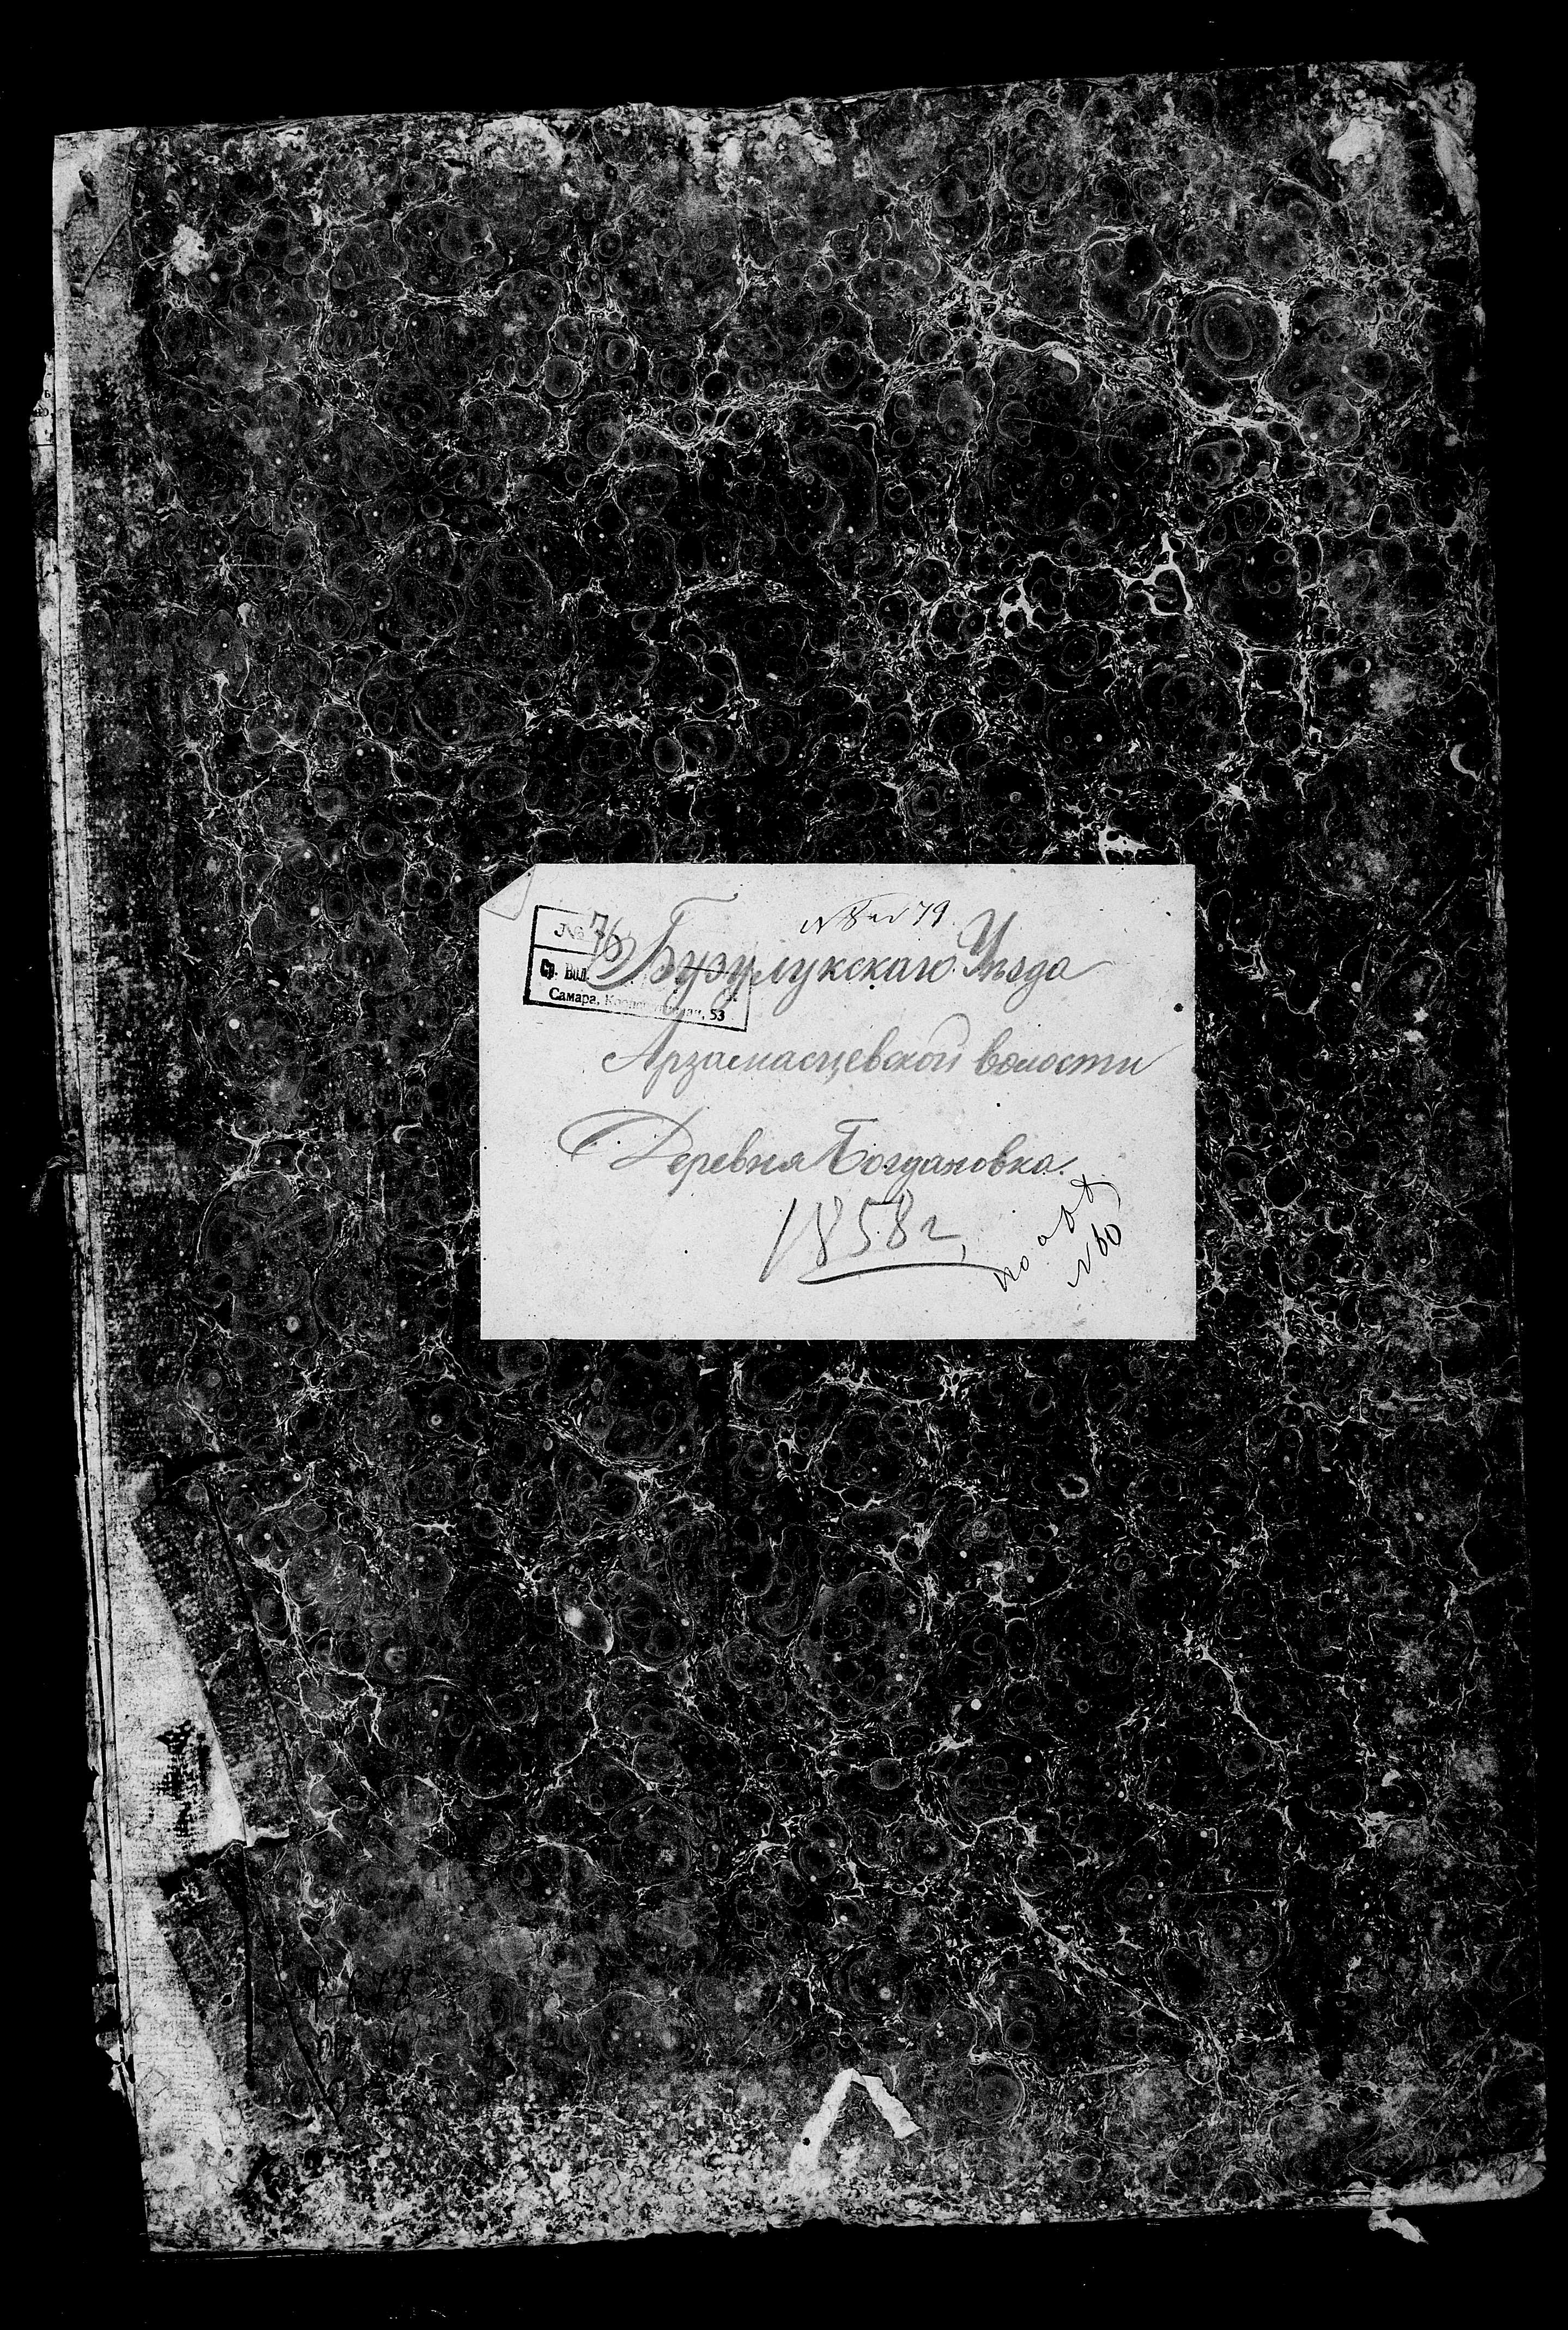 № 76
Ср. Вол.
Самара, 53
79
Бузулукскаго Уѣзда
Арзамасцевской волости
Деревня Богдановка.
1858 г.
по
№ 60